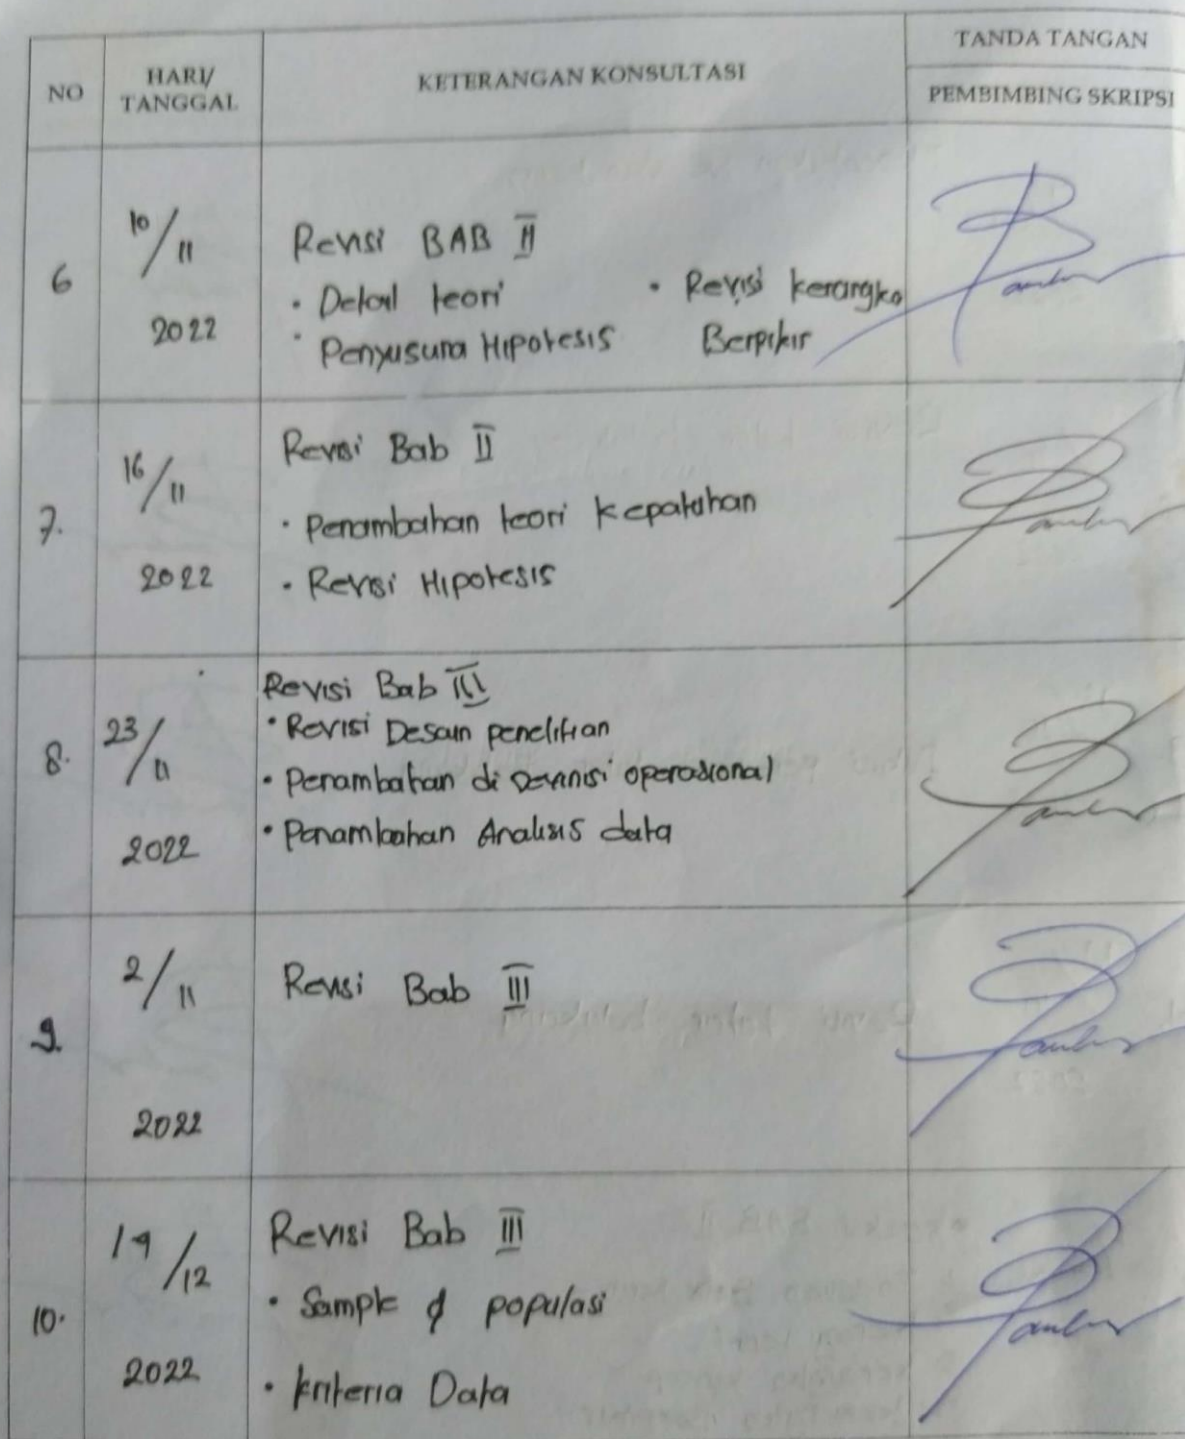 NO
HARI/
TANGGAL
KETERANGAN KONSULTASI
TANDA TANGAN
PEMBIMBING SKRIPSI
6
10/11
2022
Revisi BAB II
• Detail teori
• Revisi kerangka
• Penyusuna Hipotesis
Berpikir
7.
16/11
2022
Revisi Bab II
• Penambahan teori kepatuhan
• Revisi Hipotesis
8.
23/11
2022
Revisi Bab III
• Revisi Desain penelitian
• Penambahan di Devinisi operasional
• Penambahan Analisis data
9.
2/11
2022
Revisi Bab III
10.
19/12
2022
Revisi Bab III
• Sample & populasi
• kriteria Data